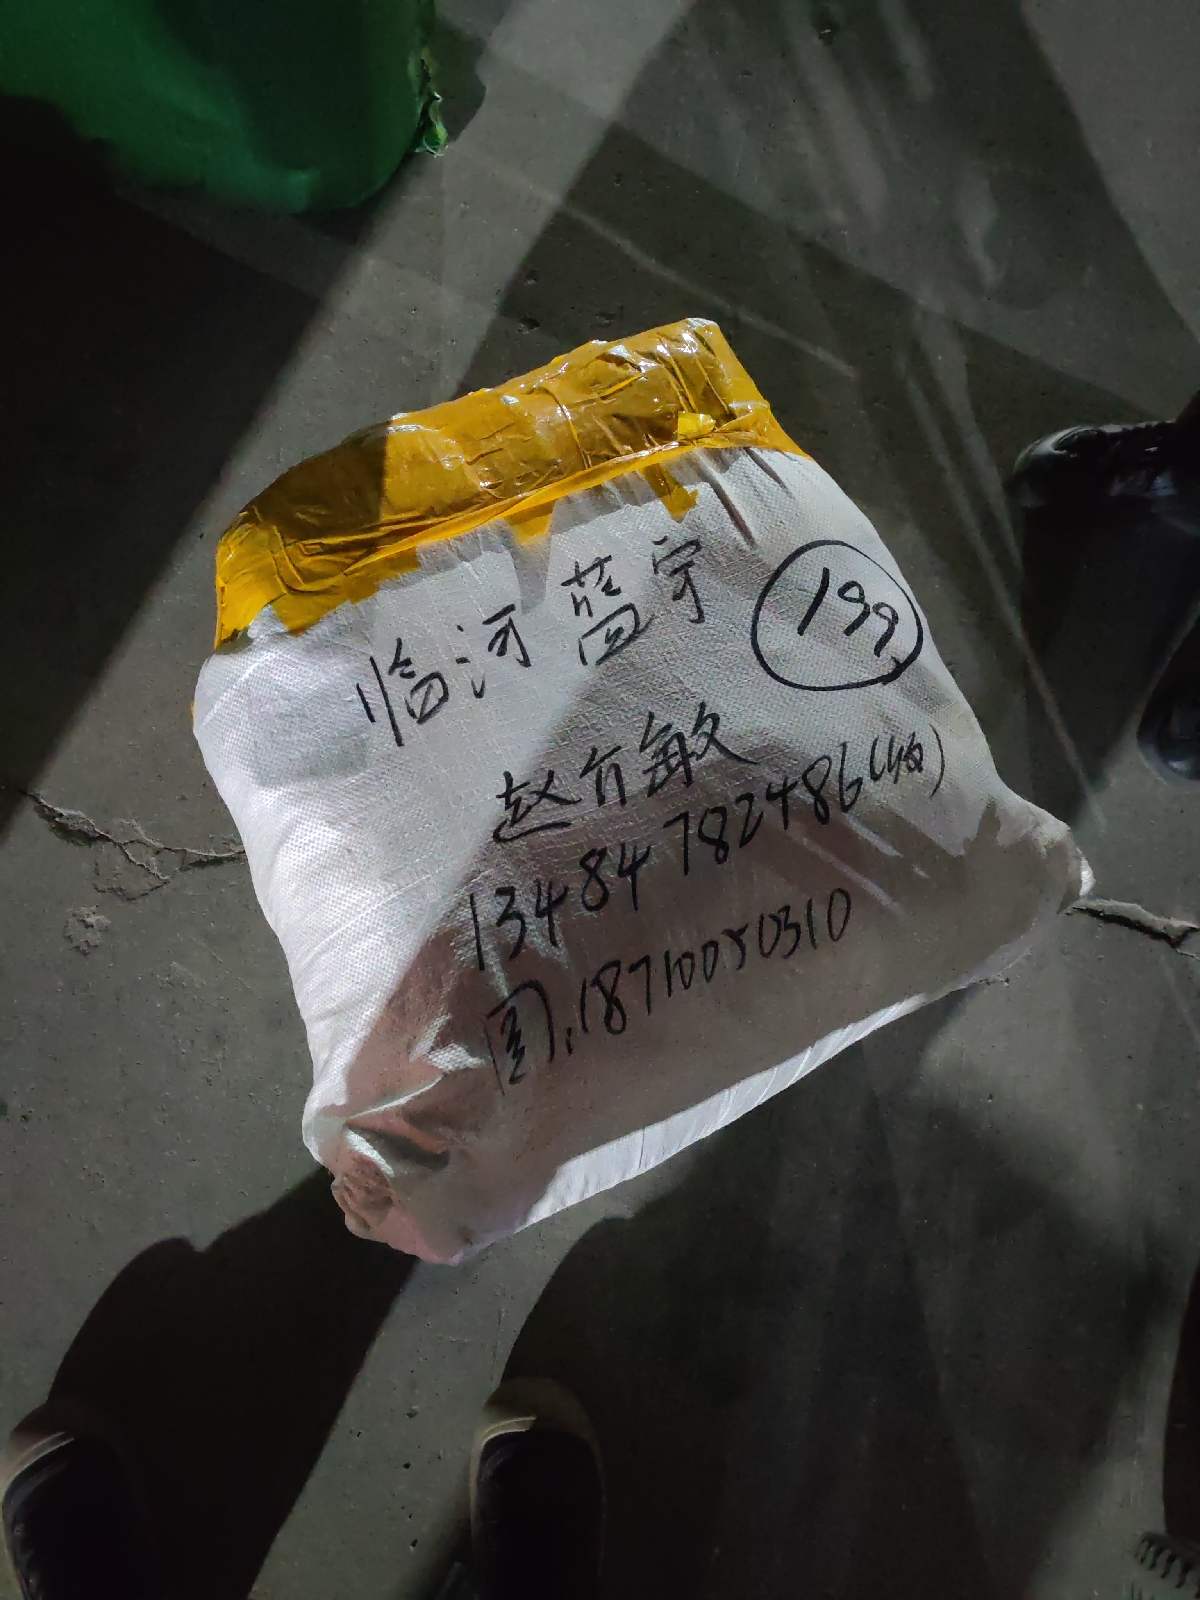 临河蓝宇
199
赵介敏
13484782486(收)
图:18710050310